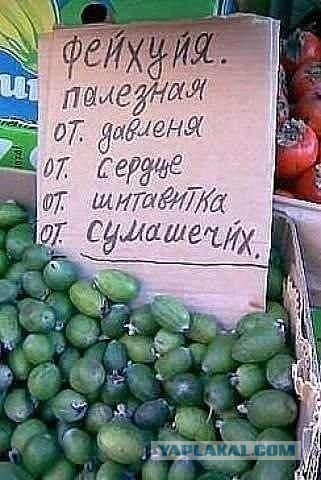 фейхуйя.
палезная
от. давленя
от. сердце
от. шитавитка
от. сумашечйх.
YAPLAKAL.COM